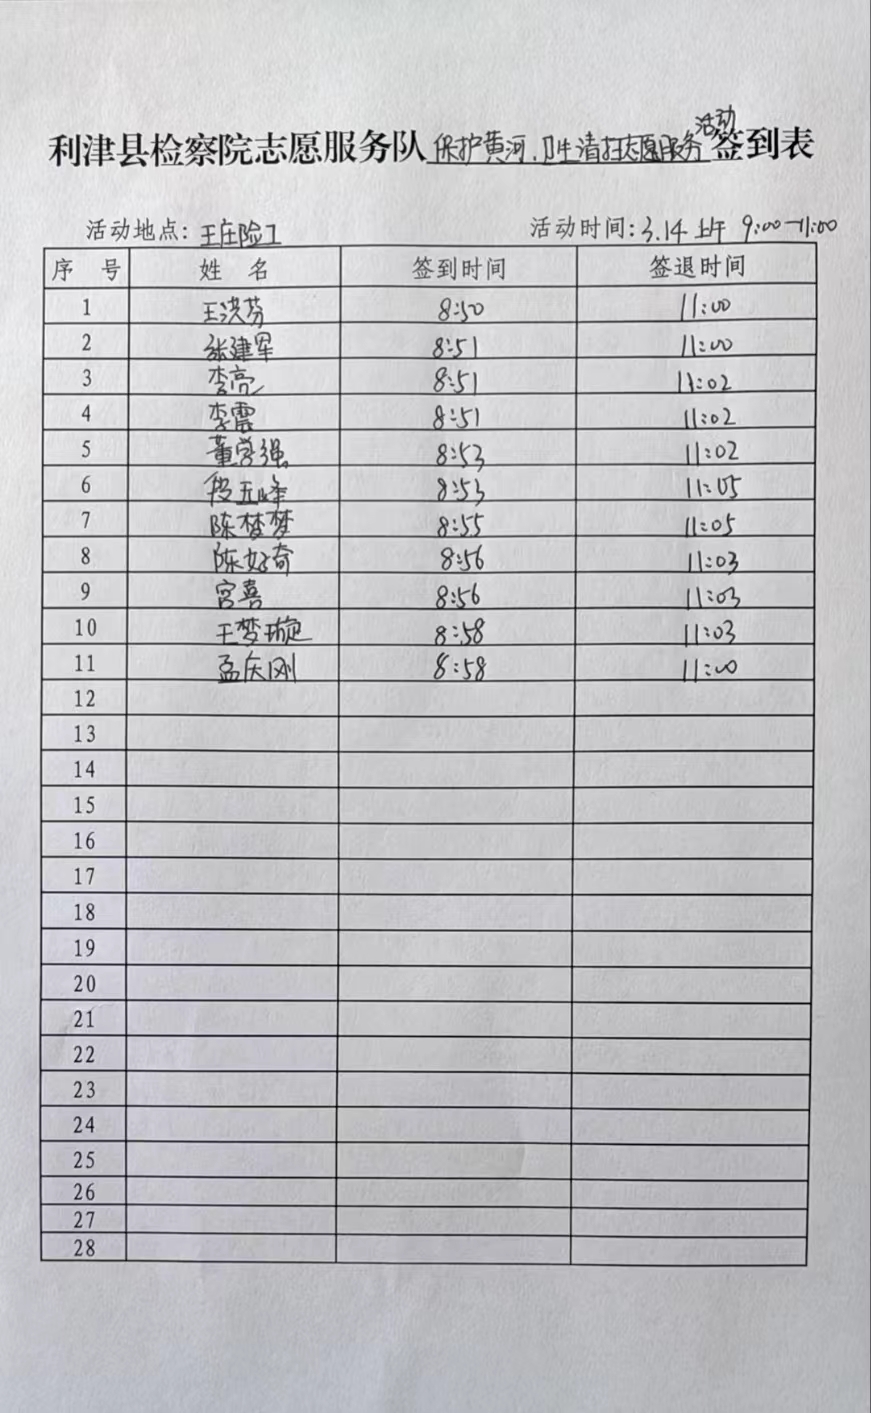 利津县检察院志愿服务队保护黄河.卫生清扫志愿服务活动签到表
活动地点:王庄险工 活动时间:3.14上午 9:00-11:00
序 号 姓 名 签到时间 签退时间
1 王洪芬 8:50 11:00
2 张建军 8:51 11:00
3 李亮 8:51 11:02
4 李震 8:51 11:02
5 董学强 8:53 11:02
6 段玉峰 8:53 11:05
7 陈梦梦 8:55 11:05
8 陈好奇 8:56 11:03
9 宫喜 8:56 11:03
10 王梦璇 8:58 11:03
11 孟庆刚 8:58 11:00
12
13
14
15
16
17
18
19
20
21
22
23
24
25
26
27
28